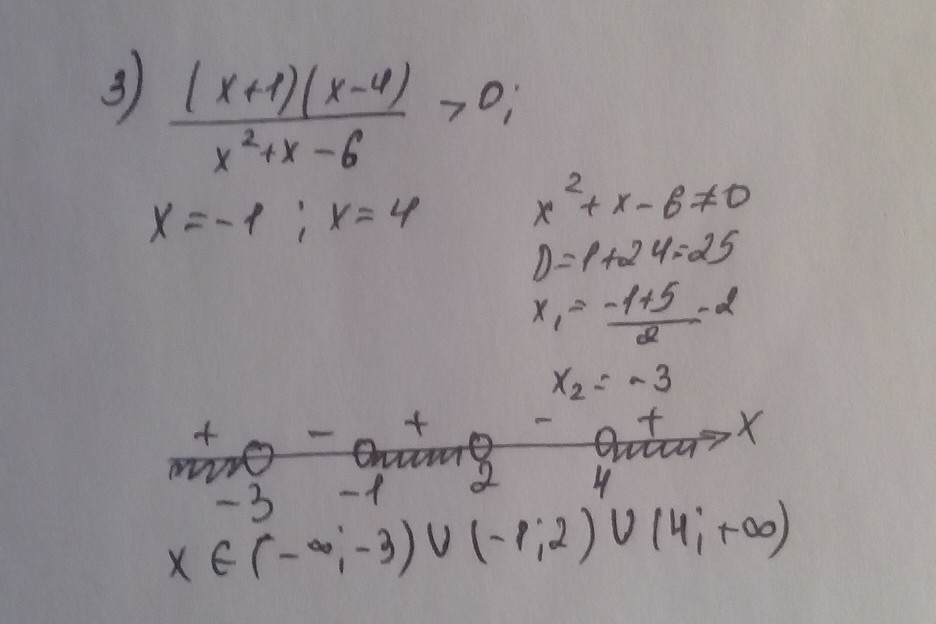 3) (x+1)(x-4) / x²+x-6 > 0;
x=-1 ; x=4
x²+x-6≠0
D=1+24=25
x₁= -1+5 / 2 = 2
x₂= -3
+ - + - + x
-3 -1 2 4
x∈(-∞;-3)∪(-1;2)∪(4;+∞)